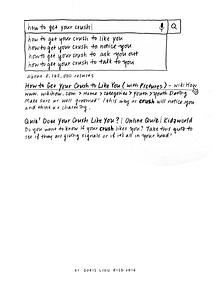 how to get your crush
how to get your crush to like you
how to get your crush to notice you
how to get your crush to ask you out
how to get your crush to talk to you
How to Get Your Crush to Like You (with Pictures) - wikiHow
www. wikihow. com > Home > categories > Youth > Youth Dating
Make sure ur well groomed! This way ur crush will notice you
and think ur charming.
Quiz: Does Your Crush Like You? | Online Quiz | Kidzworld
Do you want to know if your crush likes you? Take this quiz to
see if they are giving signals or if it's all in your head!